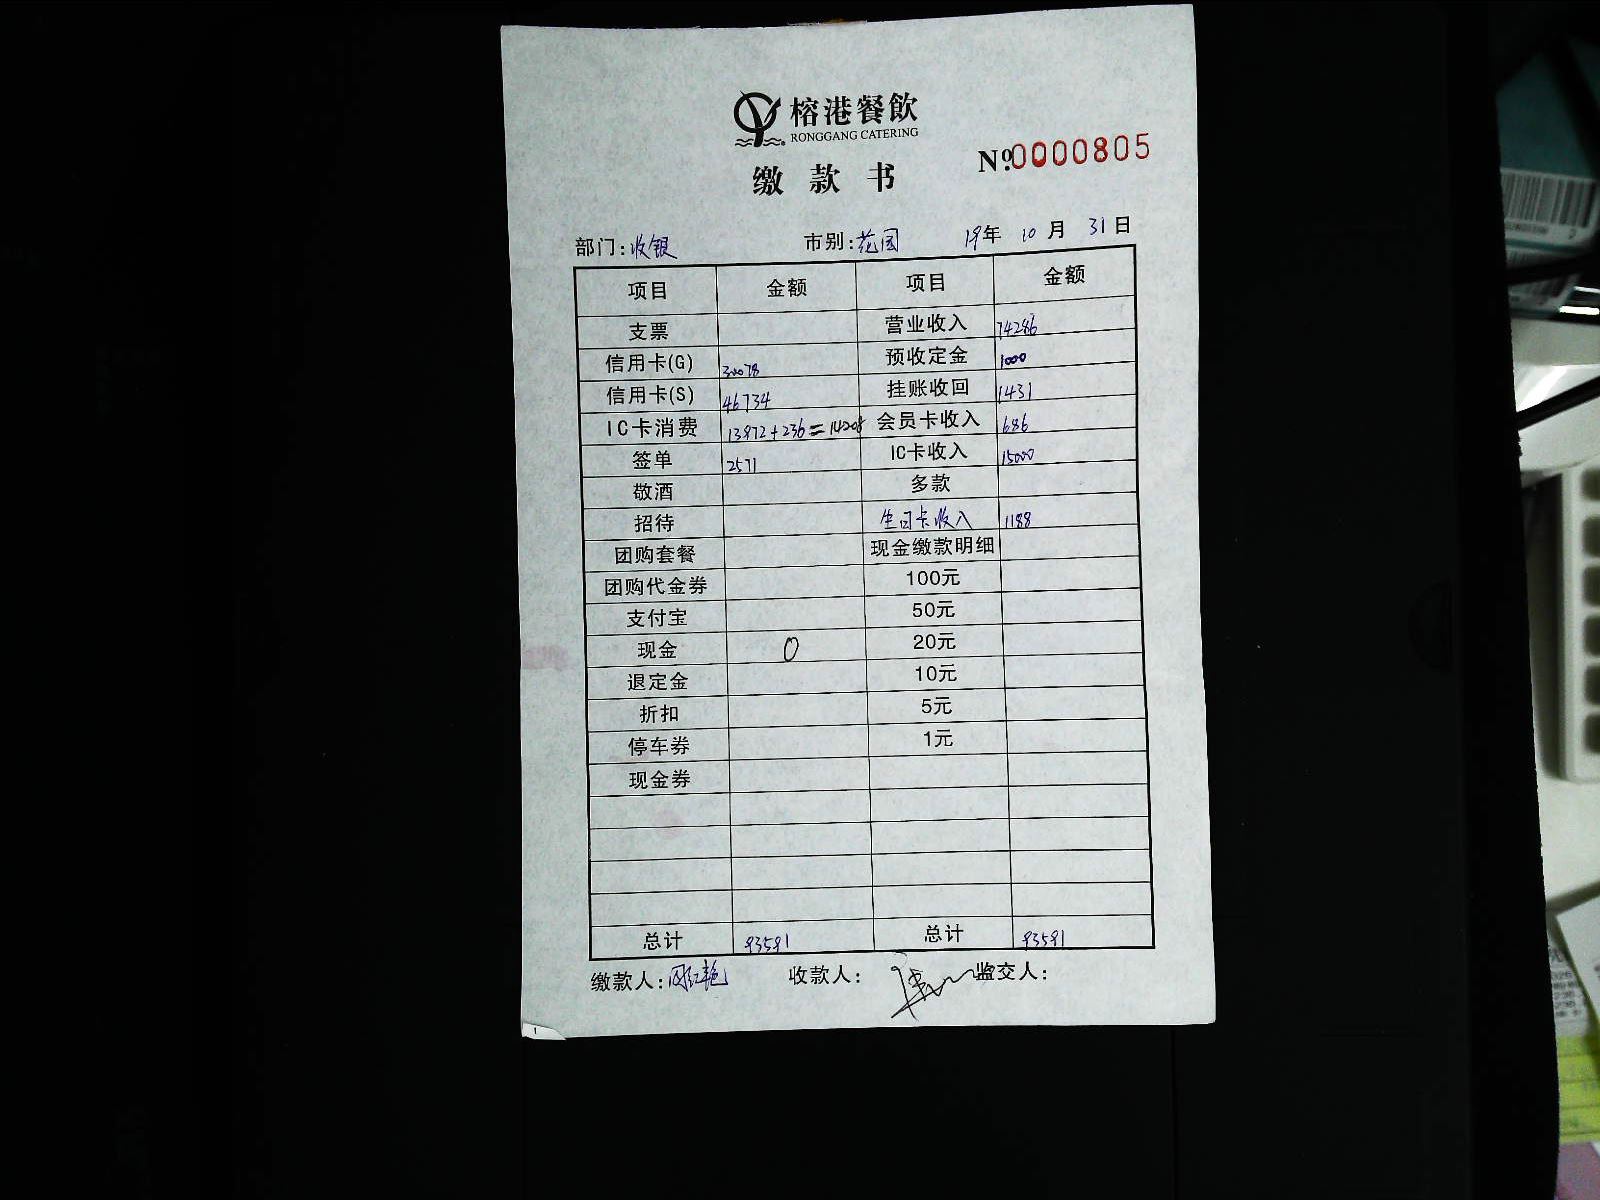 榕港餐飲
RONGGANG CATERING
缴款书
№0000805
部门:收银 市别:花园 19年 10月 31日
项目 金额 项目 金额
支票 营业收入 74286
信用卡(G) 30078 预收定金 1000
信用卡(S) 46734 挂账收回 1431
IC卡消费 13972+236=14208 会员卡收入 686
签单 2571 IC卡收入 15000
敬酒 多款
招待 生日卡收入 1188
团购套餐 现金缴款明细
团购代金券 100元
支付宝 50元
现金 0 20元
退定金 10元
折扣 5元
停车券 1元
现金券
总计 93591 总计 93591
缴款人: 收款人: 监交人: